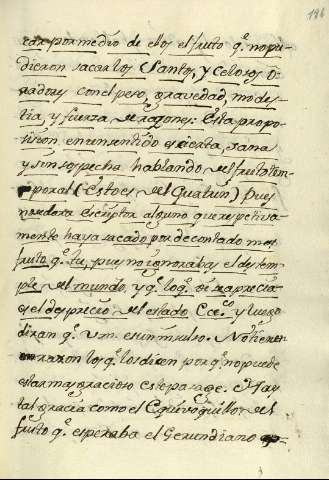 186
car por medio de ellos el fruto q.e no pu-
dieron sacar los Santos, y Celosos O-
radores con el peso, gravedad, modes-
tia, y fuerza de razones: Esta propo-
sision en un sentido es cierta, sana
y sin sospecha hablando del fruto tem-
poral (Esto es del Quatrin) Pues
no abra Escriptor alguno que respetiva-
mente haya sacado por de contado mas
fruto q.e tu, pues no ignorabas el destem-
ple del mundo, y q.e lo q.e se aprecia
es el desprecio del estado Ecc.co y luego
diran q.e Vm. es un mulo. No tienen
razon los q.e lo dicen por q.e no puede
estar mas gracioso este pasage. Hay
tal gracia como el Equivoquillo del
fruto q.e esperaba el Gerundiano